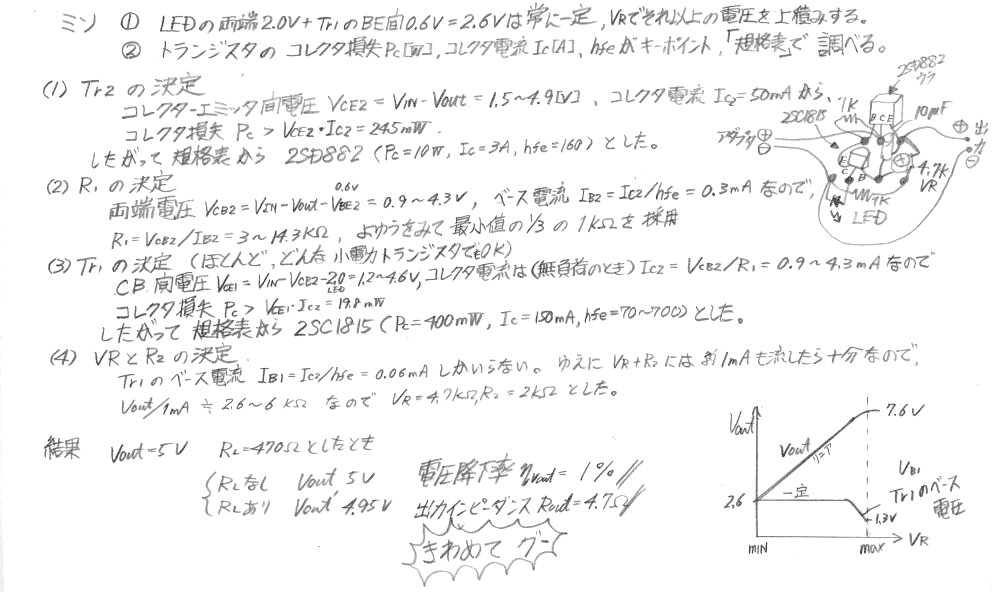 ミソ ① LEDの両端2.0V+Tr1のBE間0.6V=2.6Vは常に一定, VRでそれ以上の電圧を上積みする。
② トランジスタのコレクタ損失Pc[W], コレクタ電流Ic[A], hfeがキーポイント,「規格表」で調べる。
(1) Tr2の決定
コレクターエミッタ間電圧 VCE2 = VIN-Vout = 1.5~4.9[V]、コレクタ電流 Ic2=50mAから、
コレクタ損失 Pc > VCE2・Ic2 = 245mW.
したがって規格表から 2SD882 (Pc=10W, Ic=3A, hfe=160) とした。
(2) R1の決定
両端電圧 VCB2 = VIN-Vout-VBE2 = 0.9~4.3V, ベース電流 IB2=Ic2/hfe=0.3mAなので,
0.6V
R1=VCB2/IB2=3~14.3KΩ, よゆうをみて最小値の1/3の1KΩを採用
(3) Tr1の決定 (ほとんど、どんな小電力トランジスタでもOK)
CB間電圧 VCE1=VIN-VCB2-2.0=1.2~4.6V, コレクタ電流は(無負荷のとき) Ic2=VCB2/R1=0.9~4.3mAなので
LED
コレクタ損失 Pc > VCE1・Ic2=19.8mW
したがって規格表から 2SC1815 (Pc=400mW, Ic=150mA, hfe=70~700)とした。
(4) VRとR2の決定
Tr1のベース電流 IB1=Ic2/hfe=0.06mAしかいらない。ゆえに VR+R2には約1mAも流したら十分なので,
Vout/1mA≒2.6~6KΩ なので VR=4.7KΩ, R2=2KΩとした。
結果 Vout=5V RL=470Ωとしたとき
RLなし Vout 5V
RLあり Vout' 4.95V
電圧降下率 ηvout=1%
出力インピーダンス Rout=4.7Ω
きわめてグー
2SD882
ウラ
1K
10μF
2SC1815
B C E
アダプタ
⊕
⊖
⊕ 出力
⊖
E
C
B
4.7K
VR
1K
LED
Vout
7.6V
Vout
リニア
2.6
一定
VB1
Tr1のベース
電圧
1.3V
MIN
max
VR